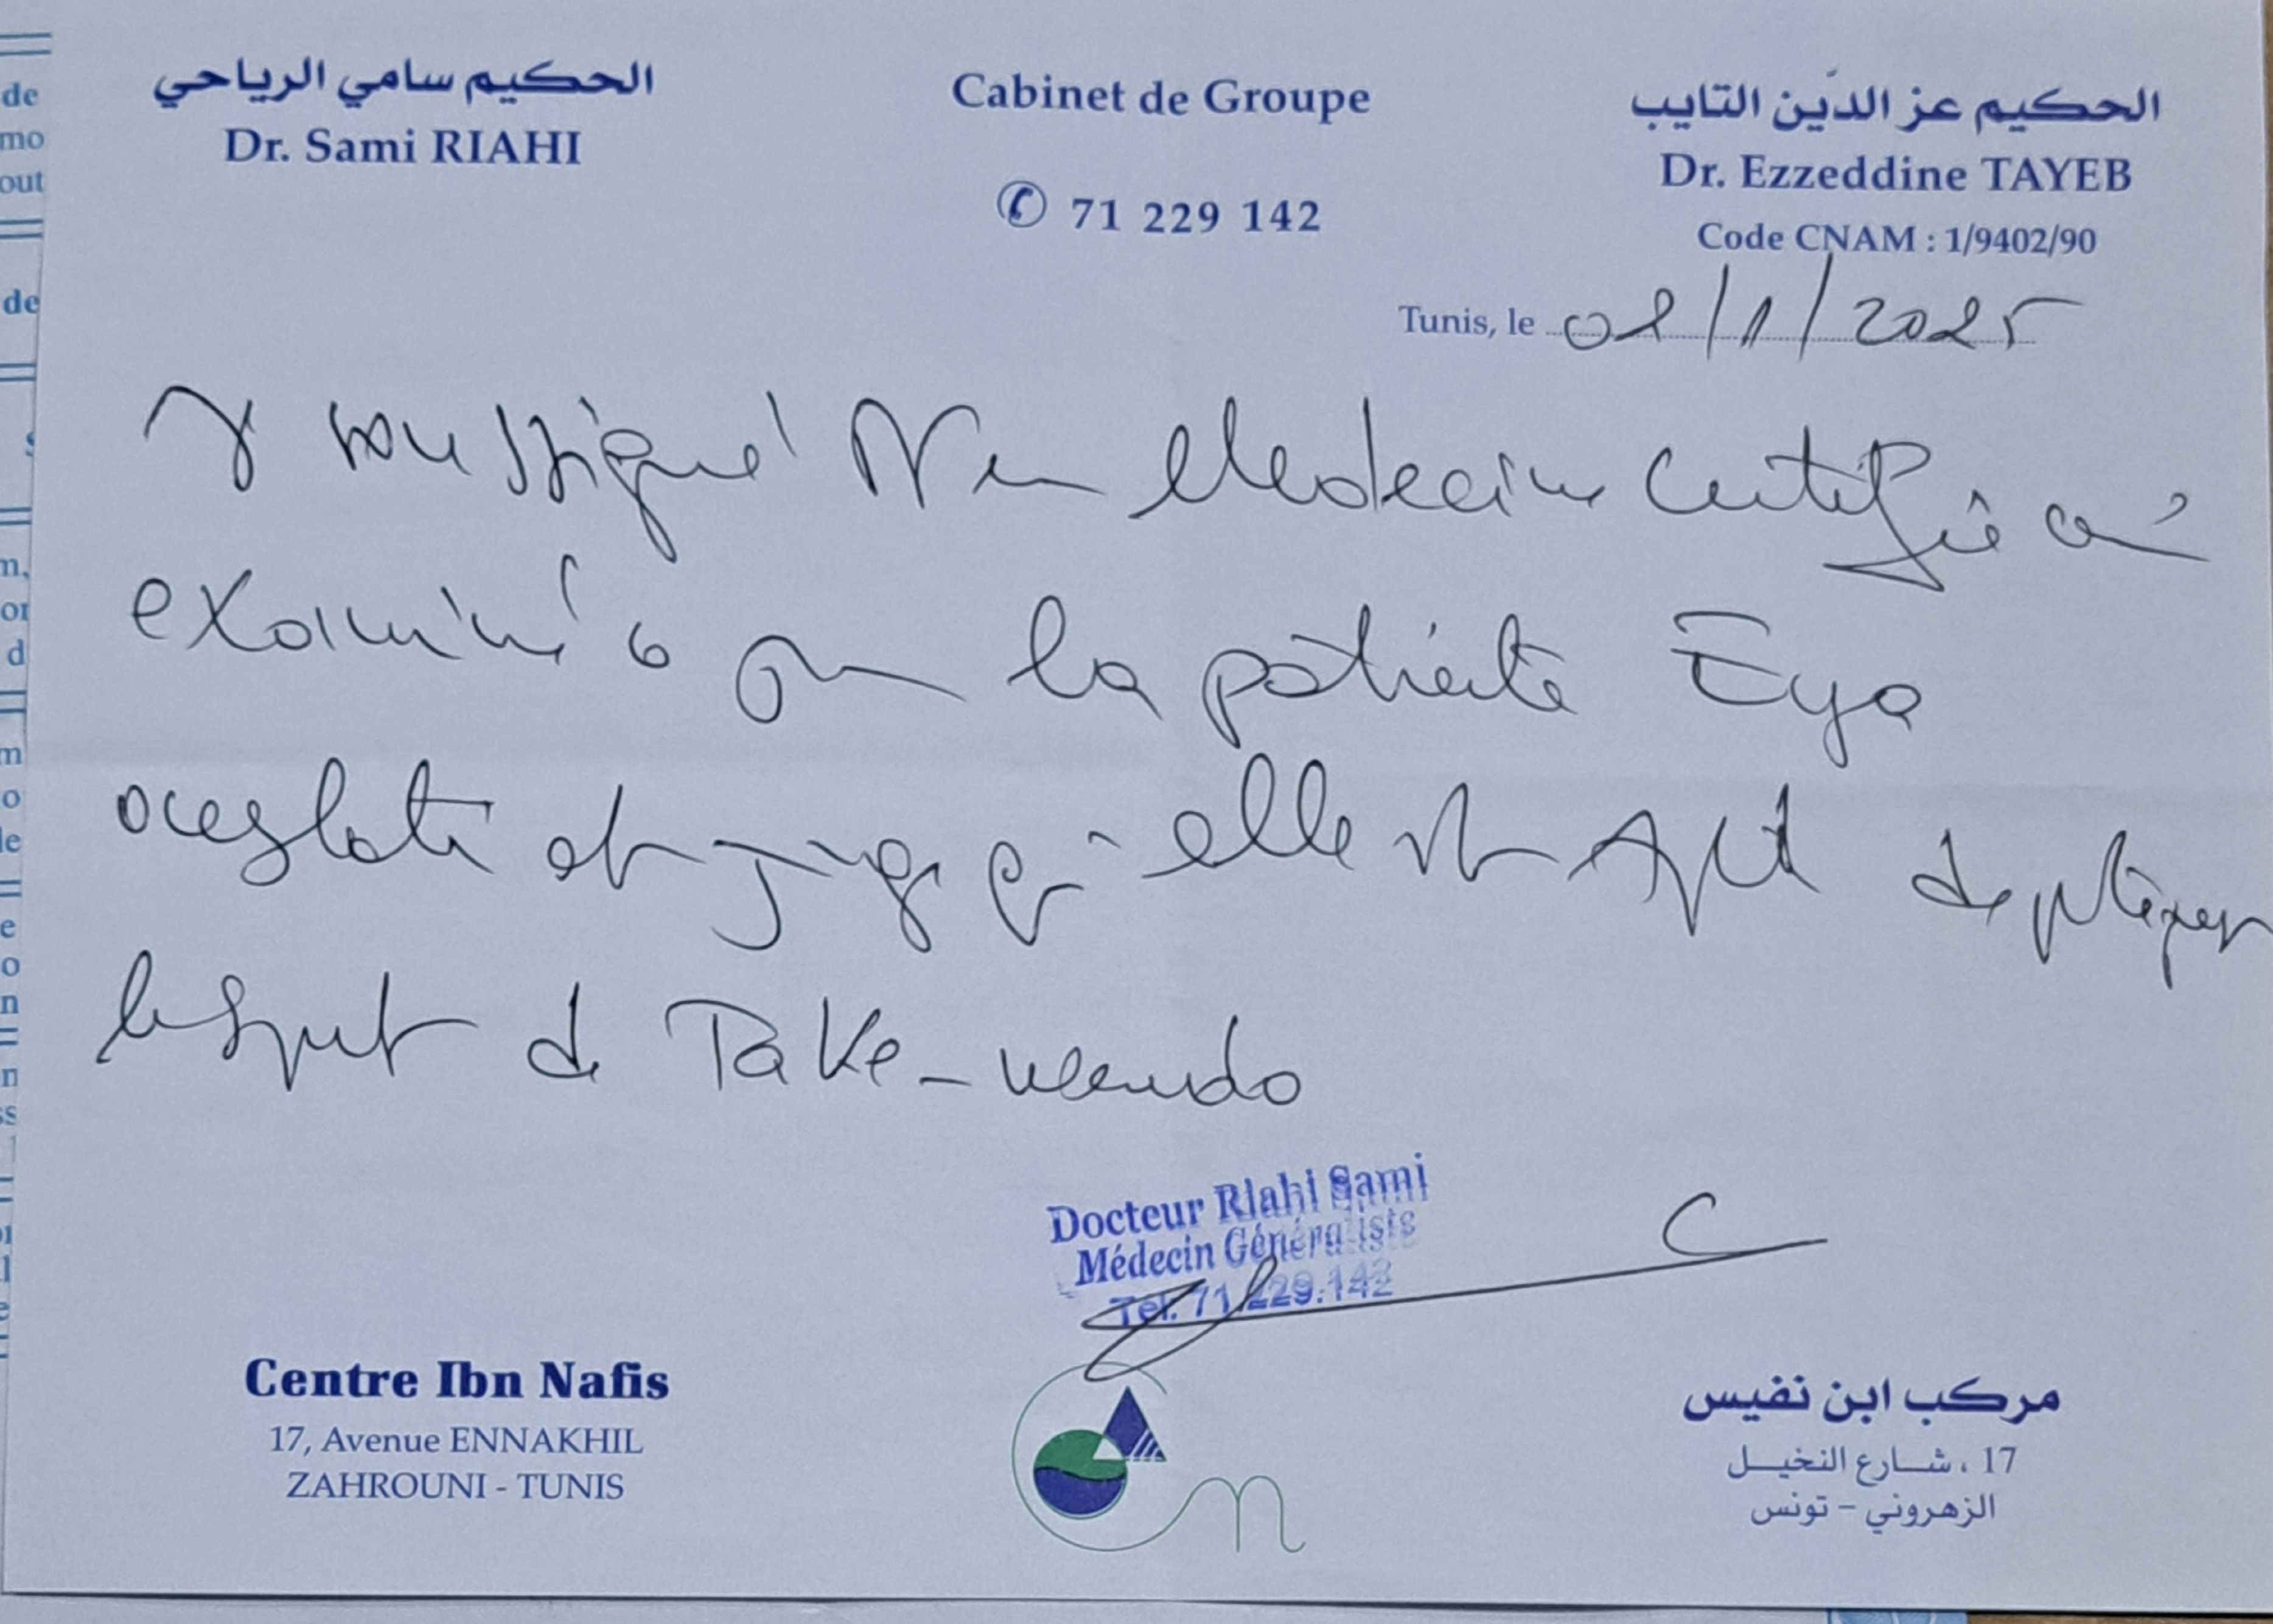 الحكيم سامي الرياحي
Dr. Sami RIAHI
Cabinet de Groupe
71 229 142
الحكيم عز الدّين التّايب
Dr. Ezzeddine TAYEB
Code CNAM : 1/9402/90
Tunis, le 02/1/2025
soussigné Médecin certifie
examiné la patiente Eya
et juge qu'elle est Apte de pratiquer
le sport de Take-wendo
Docteur Riahi Sami
Médecin Généraliste
Tél. 71.229.142
Centre Ibn Nafis
17, Avenue ENNAKHIL
ZAHROUNI - TUNIS
مركب ابن نفيس
17 ، شارع النخيل
الزهروني - تونس